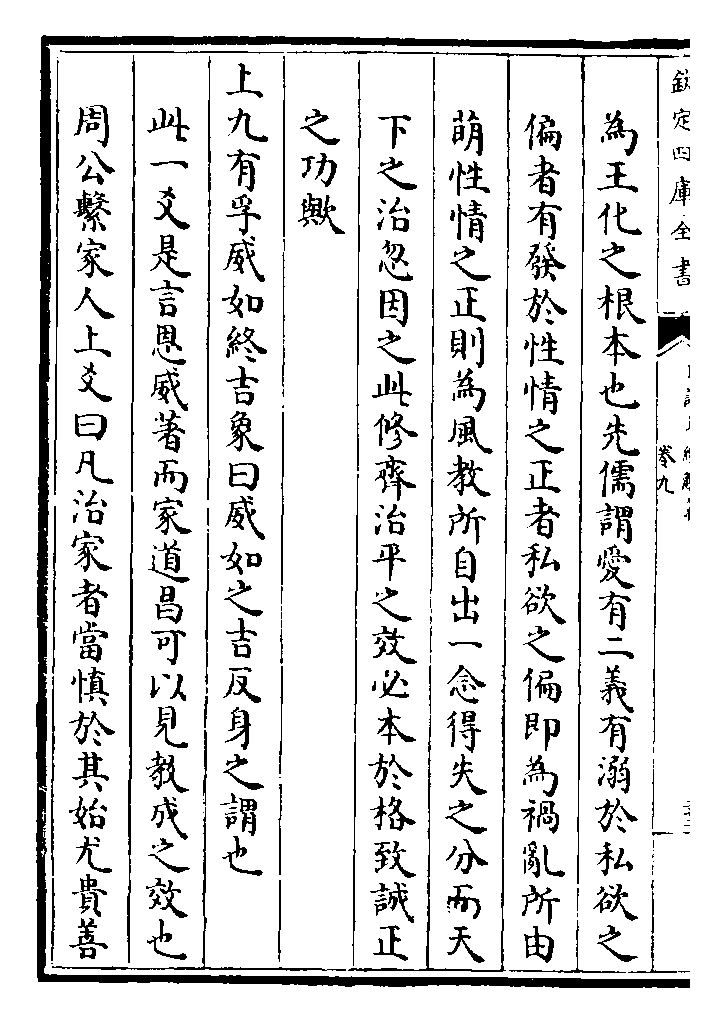 欽定四庫全書
卷九
為王化之根本也先儒謂愛有二義有溺於私欲之
偏者有發於性情之正者私欲之偏即為禍亂所由
萌性情之正則為風教所自出一念得失之分而天
下之治忽因之此修齊治平之效必本於格致誠正
之功歟
上九有孚威如終吉象曰威如之吉反身之謂也
此一爻是言恩威著而家道昌可以見教成之效也
周公繫家人上爻曰凡治家者當慎於其始尤貴善